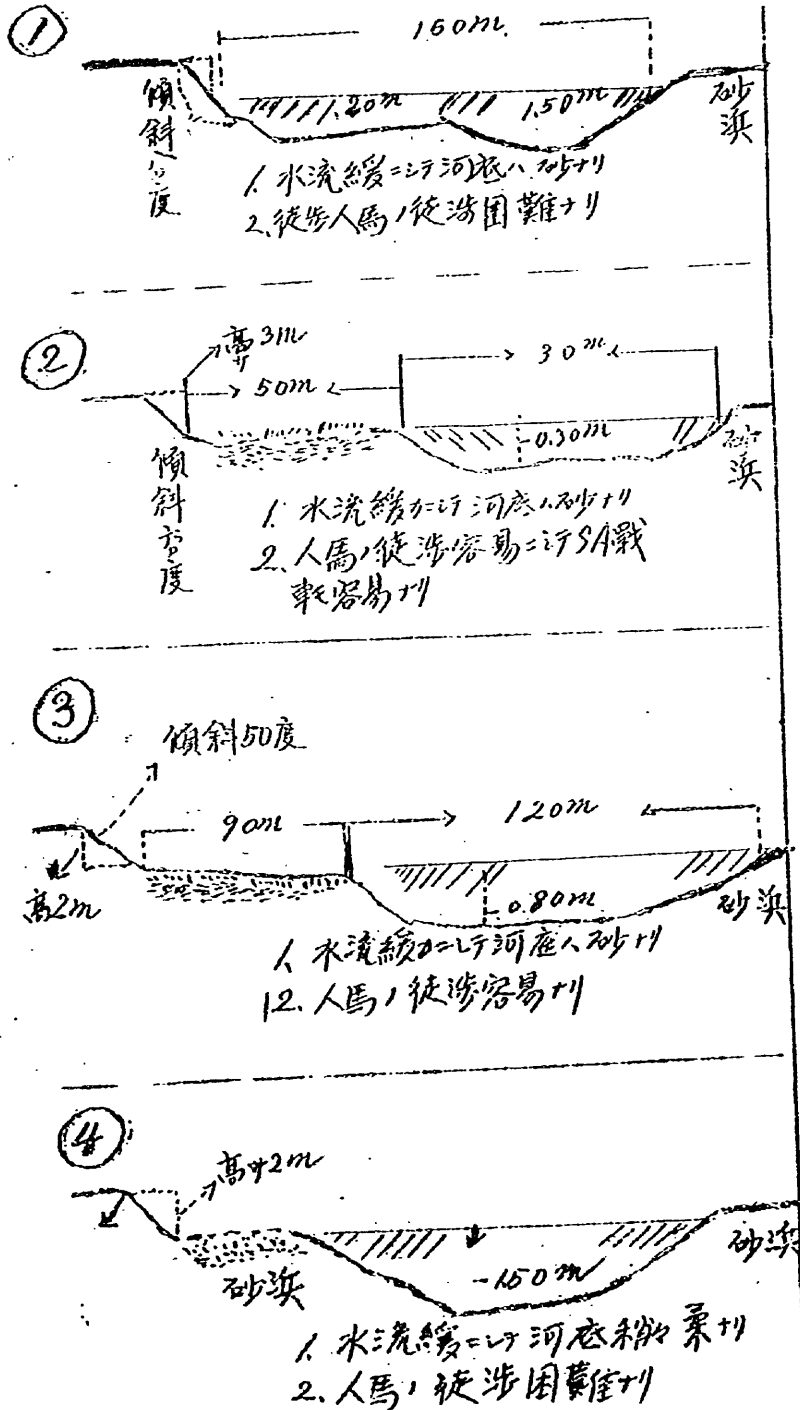 ①
160m
1.20m
1.50m
傾斜
度
砂浜
1. 水流緩ニシテ河底ハ砂ナリ
2. 徒歩人馬ノ徒渉困難ナリ
②
高サ3m
50m
30m
-0.30m
傾斜
度
砂浜
1. 水流緩カニシテ河底ハ砂ナリ
2. 人馬ノ徒渉容易ニシテSA戦
車モ容易ナリ
③
傾斜50度
90m
120m
高2m
-0.80m
砂浜
1. 水流緩カニシテ河底ハ砂ナリ
2. 人馬ノ徒渉容易ナリ
④
高サ2m
砂浜
-1.50m
砂浜
1. 水流緩ニシテ河底稍々ナリ
2. 人馬ノ徒渉困難ナリ